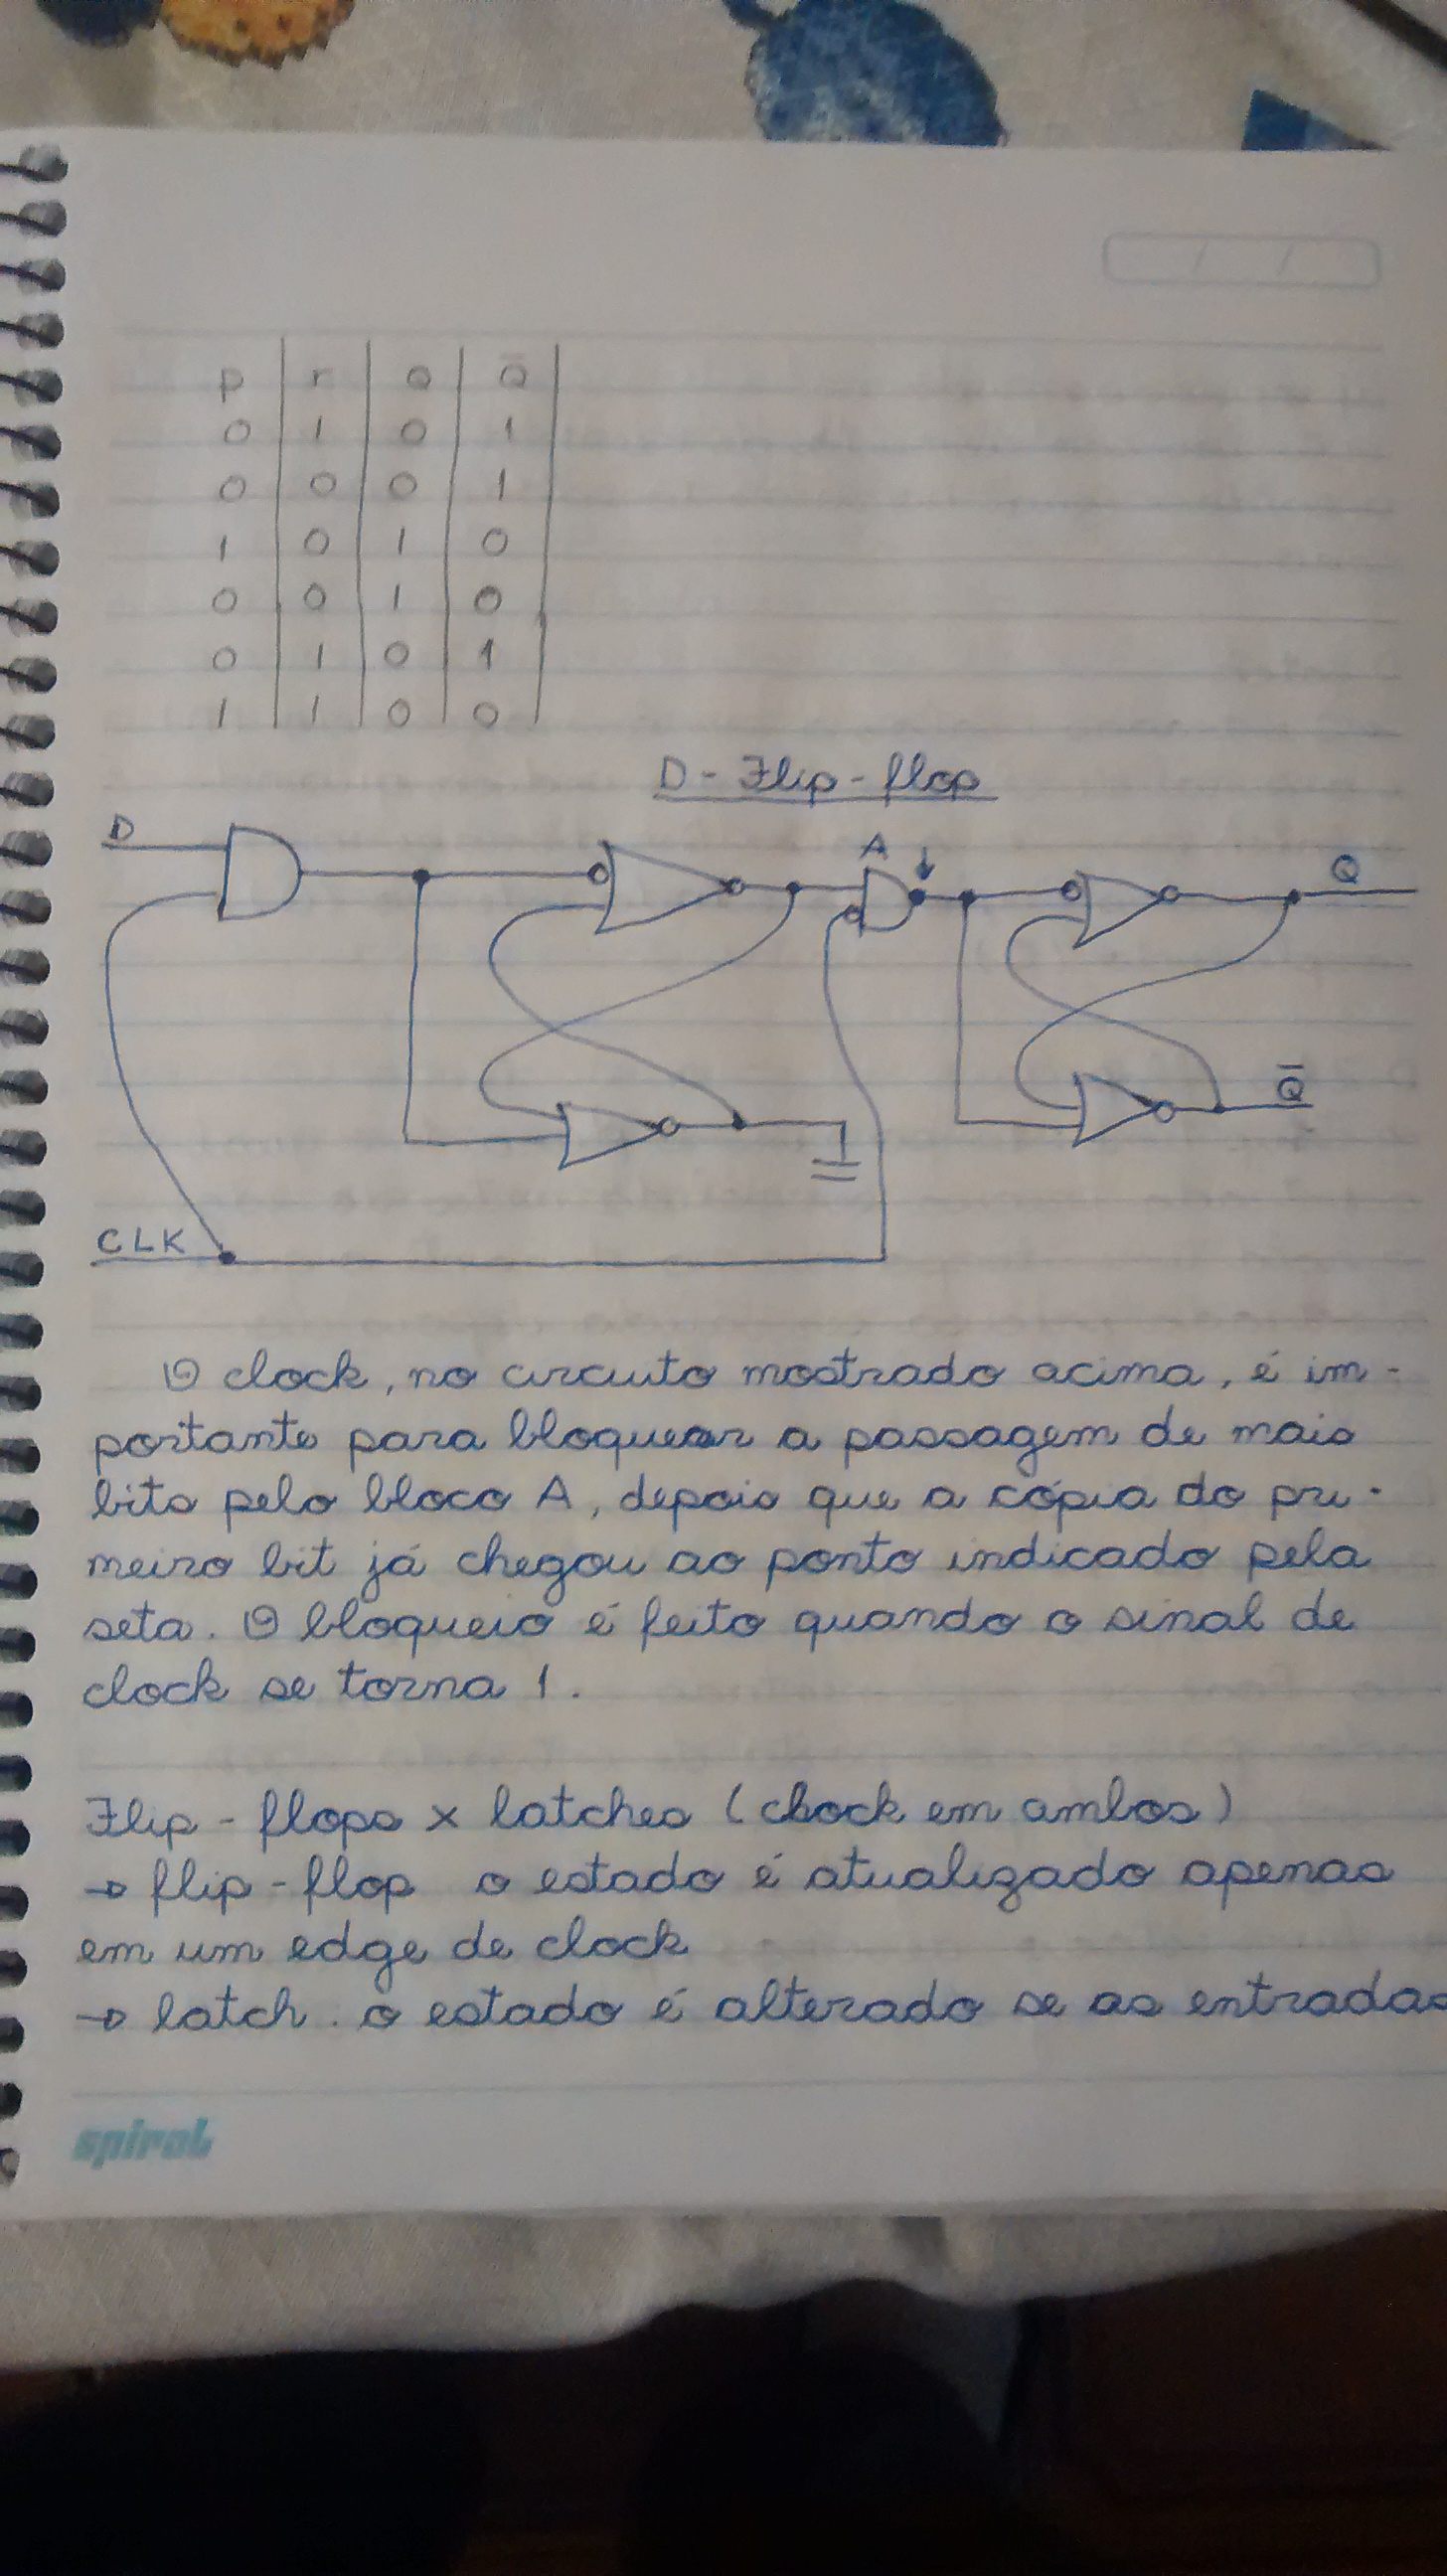 p r Q Q̄
0 1 0 1
0 0 0 1
1 0 1 0
0 0 1 0
0 1 0 1
1 1 0 0
D - Flip - flop
D
A
Q
Q̄
CLK
O clock, no circuito mostrado acima, é im-
portante para bloquear a passagem de mais
bits pelo bloco A, depois que a cópia do pri-
meiro bit já chegou ao ponto indicado pela
seta. O bloqueio é feito quando o sinal de
clock se torna 1.
Flip - flops x latches (clock em ambos)
→ flip - flop o estado é atualizado apenas
em um edge de clock
→ latch. o estado é alterado se as entradas
spiral